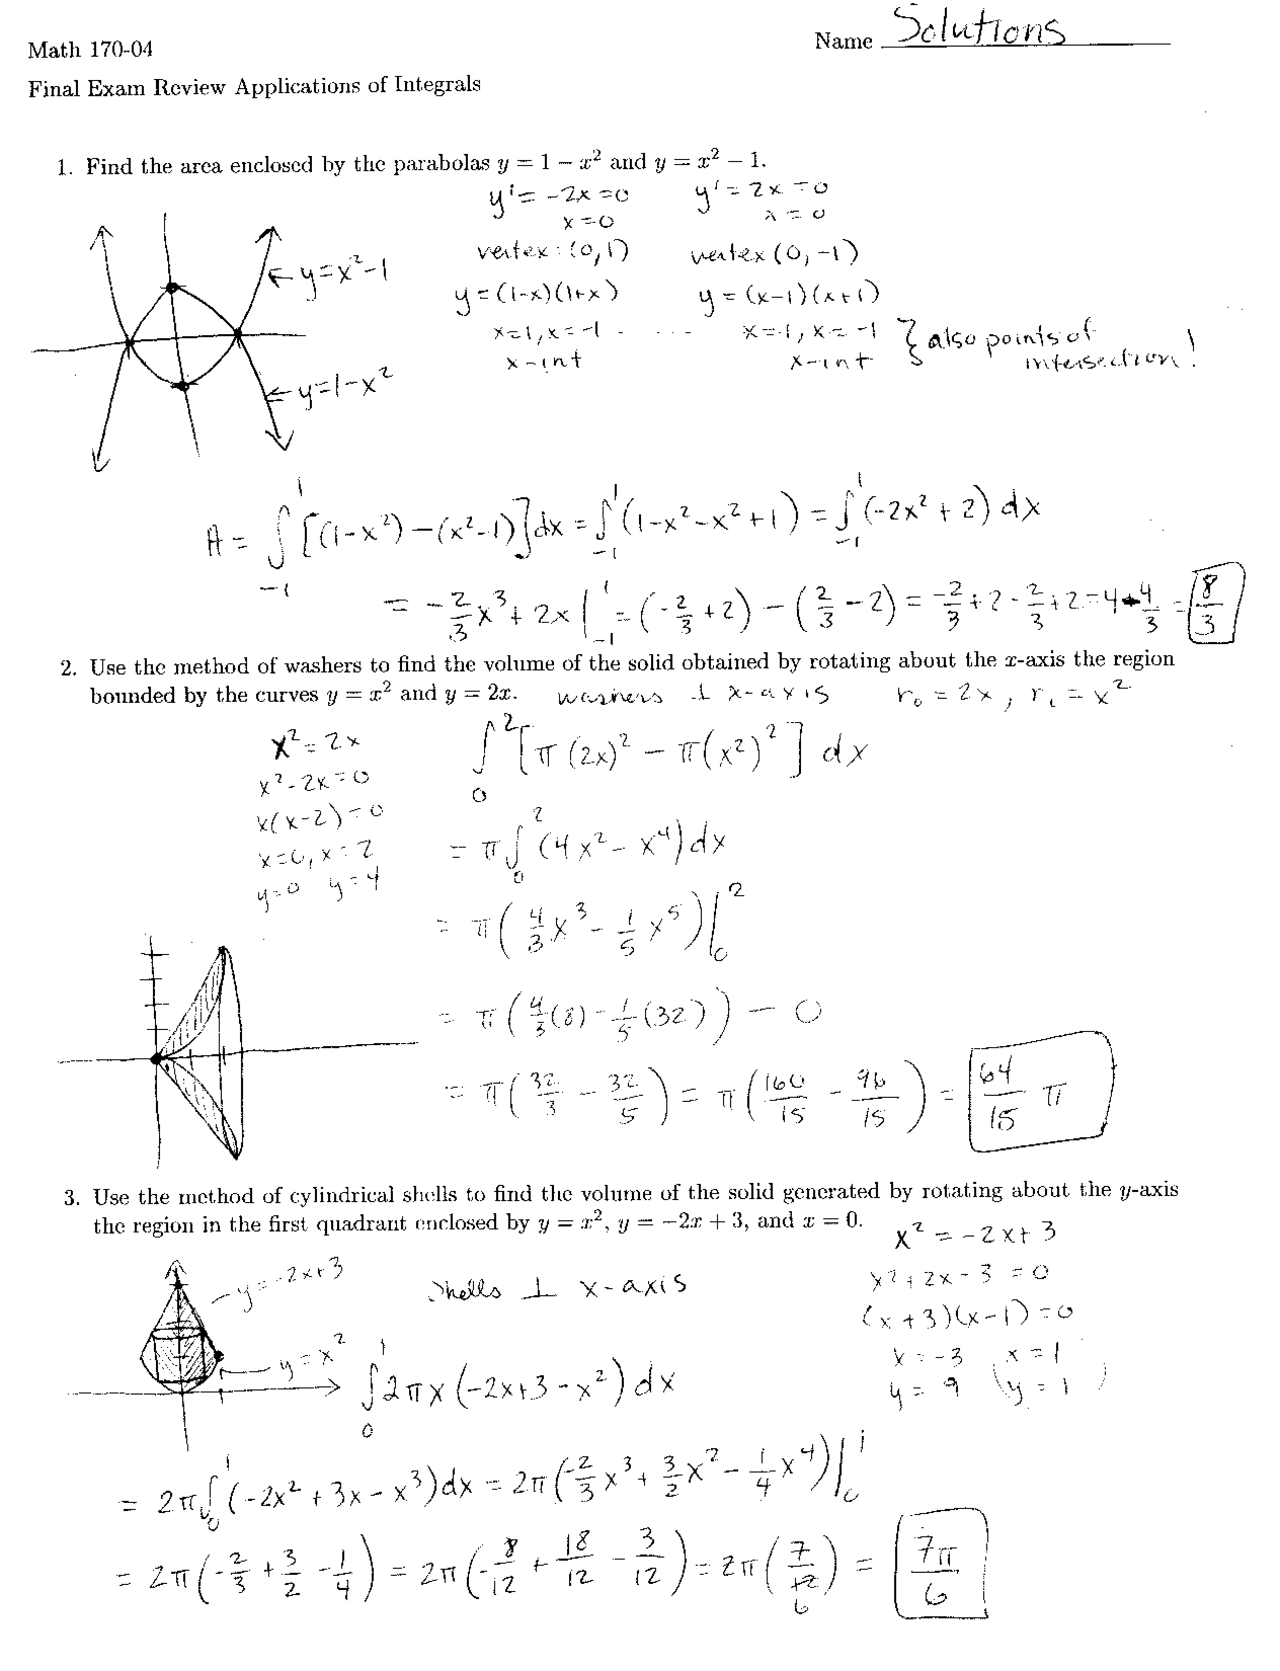 Name Solutions
Math 170-04
Final Exam Review Applications of Integrals
1. Find the area enclosed by the parabolas y = 1 − x² and y = x² − 1.
y' = -2x = 0   y' = 2x = 0
x = 0   x = 0
vertex: (0,1)   vertex (0,-1)
← y = x² - 1
y = (1-x)(1+x)   y = (x-1)(x+1)
x=1, x=-1 - ... x=1, x=-1 } also points of intersection!
x-int   x-int
← y = 1-x²
A = ∫_{-1}^{1} [(1-x²) - (x²-1)] dx = ∫_{-1}^{1} (1-x²-x²+1) = ∫_{-1}^{1} (-2x²+2) dx
= -2/3 x³ + 2x |_{-1}^{1} = (-2/3 + 2) - (2/3 - 2) = -2/3 + 2 - 2/3 + 2 = 4 - 4/3 = 8/3
2. Use the method of washers to find the volume of the solid obtained by rotating about the x-axis the region
bounded by the curves y = x² and y = 2x. washers ⊥ x-axis   r₀ = 2x, rᵢ = x²
x² = 2x
x² - 2x = 0
x(x-2) = 0
x=0, x=2
y=0 y=4
∫_0^2 [π(2x)² - π(x²)²] dx
= π∫_0^2 (4x² - x⁴) dx
= π(4/3 x³ - 1/5 x⁵)|_0^2
= π(4/3(8) - 1/5(32)) - 0
= π(32/3 - 32/5) = π(160/15 - 96/15) = 64/15 π
3. Use the method of cylindrical shells to find the volume of the solid generated by rotating about the y-axis
the region in the first quadrant enclosed by y = x², y = −2x + 3, and x = 0.
x² = -2x+3
x² + 2x - 3 = 0
(x+3)(x-1) = 0
x = -3   x = 1
y = 9   (y = 1)
y = -2x+3
shells ⊥ x-axis
y = x²
∫_0^1 2πx(-2x+3-x²) dx
= 2π∫_0^1 (-2x²+3x-x³) dx = 2π(-2/3 x³ + 3/2 x² - 1/4 x⁴)|_0^1
= 2π(-2/3 + 3/2 - 1/4) = 2π(-8/12 + 18/12 - 3/12) = 2π(7/12) = 7π/6
6